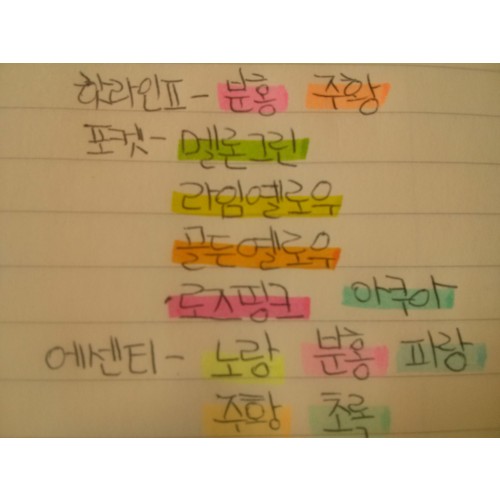 핫라인Ⅱ - 분홍 주황
포켓 - 멜론그린
라임옐로우
골든옐로우
로즈핑크 아쿠아
에센티 - 노랑 분홍 파랑
주황 초록